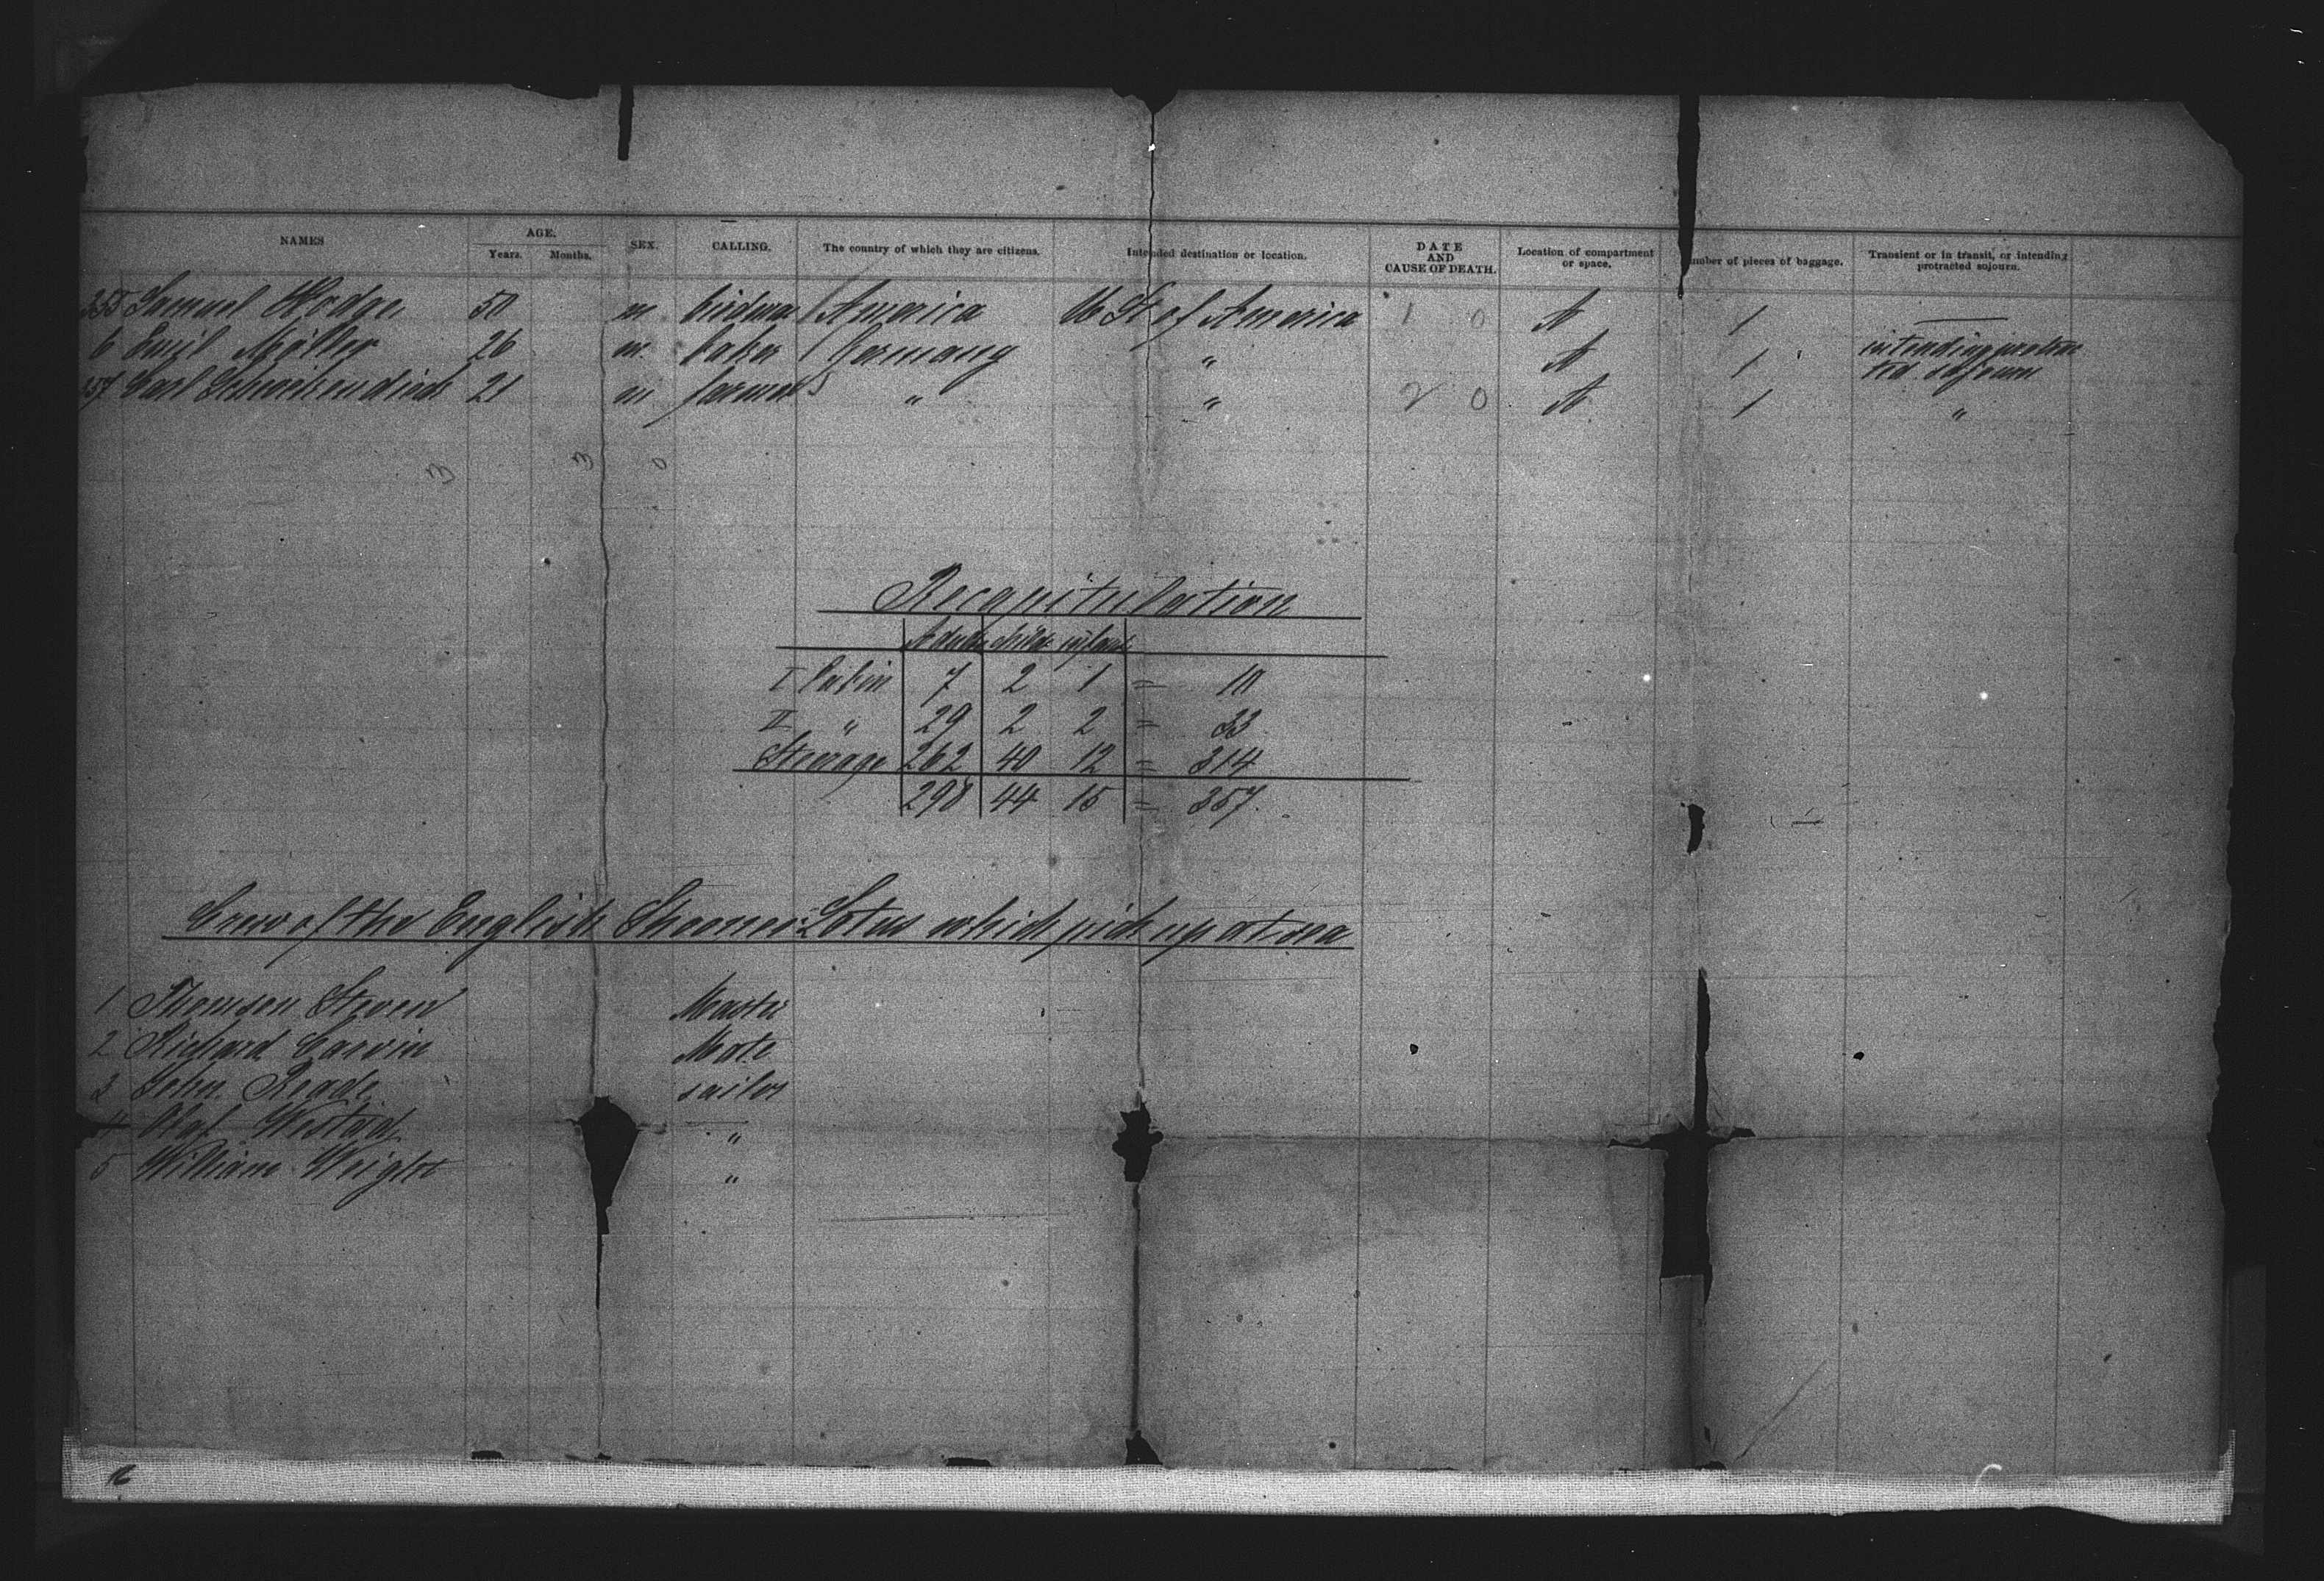 NAMES AGE. Years. Months. SEX. CALLING. The country of which they are citizens. Intended destination or location. DATE AND CAUSE OF DEATH. Location of compartment or space. Number of pieces of baggage. Transient or in transit, or intending protracted sojourn.
355 Samuel Hodge 50 m America U St of America 1 0 A 1 —
6 Emil Möller 26 m baker Germany " A 1 intending protrac
357 Carl 21 m farmer " " 2 0 A 1 ted sojourn
"
3 3 0
Recapitulation
Adults childr infants
I Cabin 7 2 1 = 10
II " 29 2 2 = 33
Steerage 262 40 12 = 314
298 44 15 = 357.
Crew of the English Shooner Lotus which pick up at sea
1 Thomson Steven Master
2 Richard Carvin Mate
3 John Reade sailor
4 Olaf "
5 William Wright "